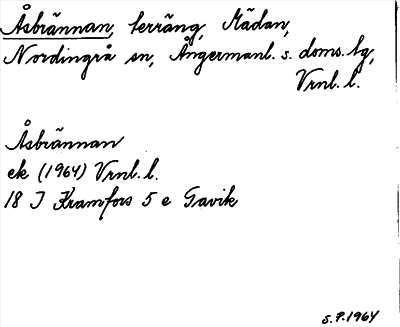 Åsbrännan, terräng, Mädan,
Nordingrå sn, Ångermanl. s. doms. lg,
Vrnl. l.
Åsbrännan
ek (1964) Vrnl. l.
18 J Kramfors 5 e Gavik
S.P. 1964